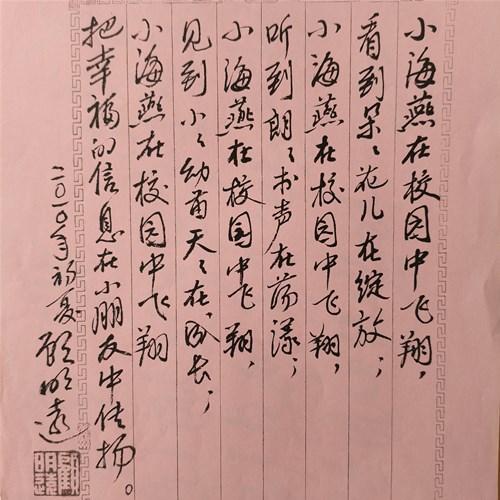 小海燕在校园中飞翔，
看到朵々花儿在绽放；
小海燕在校园中飞翔，
听到朗々书声在荡漾；
小海燕在校园中飞翔，
见到小々幼苗天々在成长；
小海燕在校园中飞翔
把幸福的信息在小朋友中传扬。
二〇一〇年初夏 顾明远